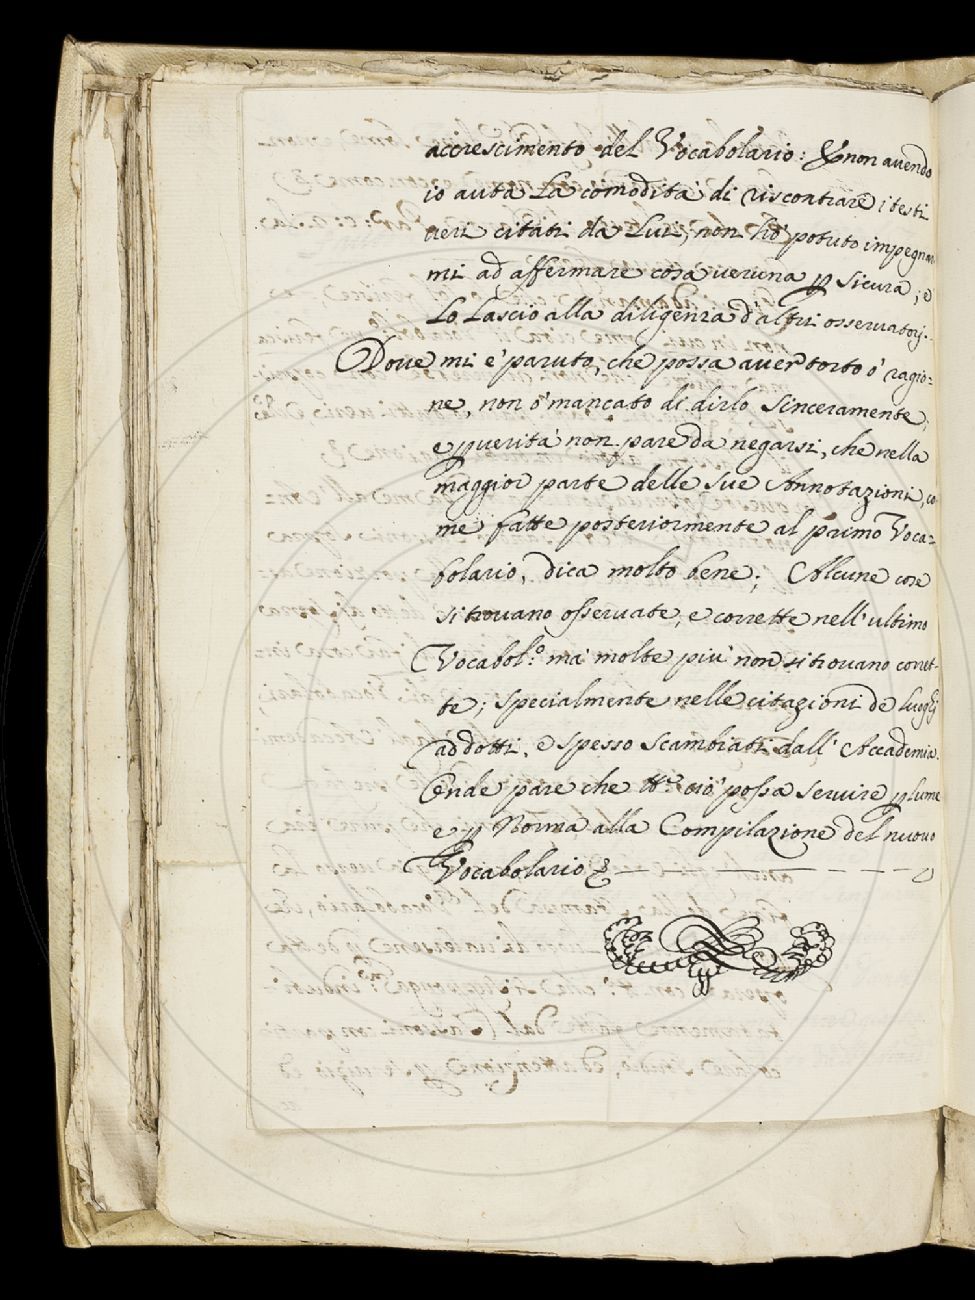 accrescimento del Vocabolario: E non avendo
io avuta la comodità di riscontrare i testi
veri citati da Lui, non hò potuto impegnar
mi ad affermare cosa veruna p sicura; e
Lo Lascio alla diligenza d'altri osservatorj.
Dove mi e' paruto, che possa aver torto ò ragio=
ne, non ò mancato di dirlo Sinceramente,
e p verità non pare da negarsi, che nella
maggior parte delle Sue Annotazioni, co
me fatte posteriormente al primo Voca=
bolario, dica molto bene; Alcune cose
si trovano osservate, e corrette nell'ultimo
Vocabol.º mà molte più non si trovano corret-
te; Specialmente nelle citazioni de luoghi
addotti, e spesso scambiati dall' Accademia.
Onde pare che tt.º ciò possa servire p lume
e p Norma alla Compilazione del nuovo
Vocabolario